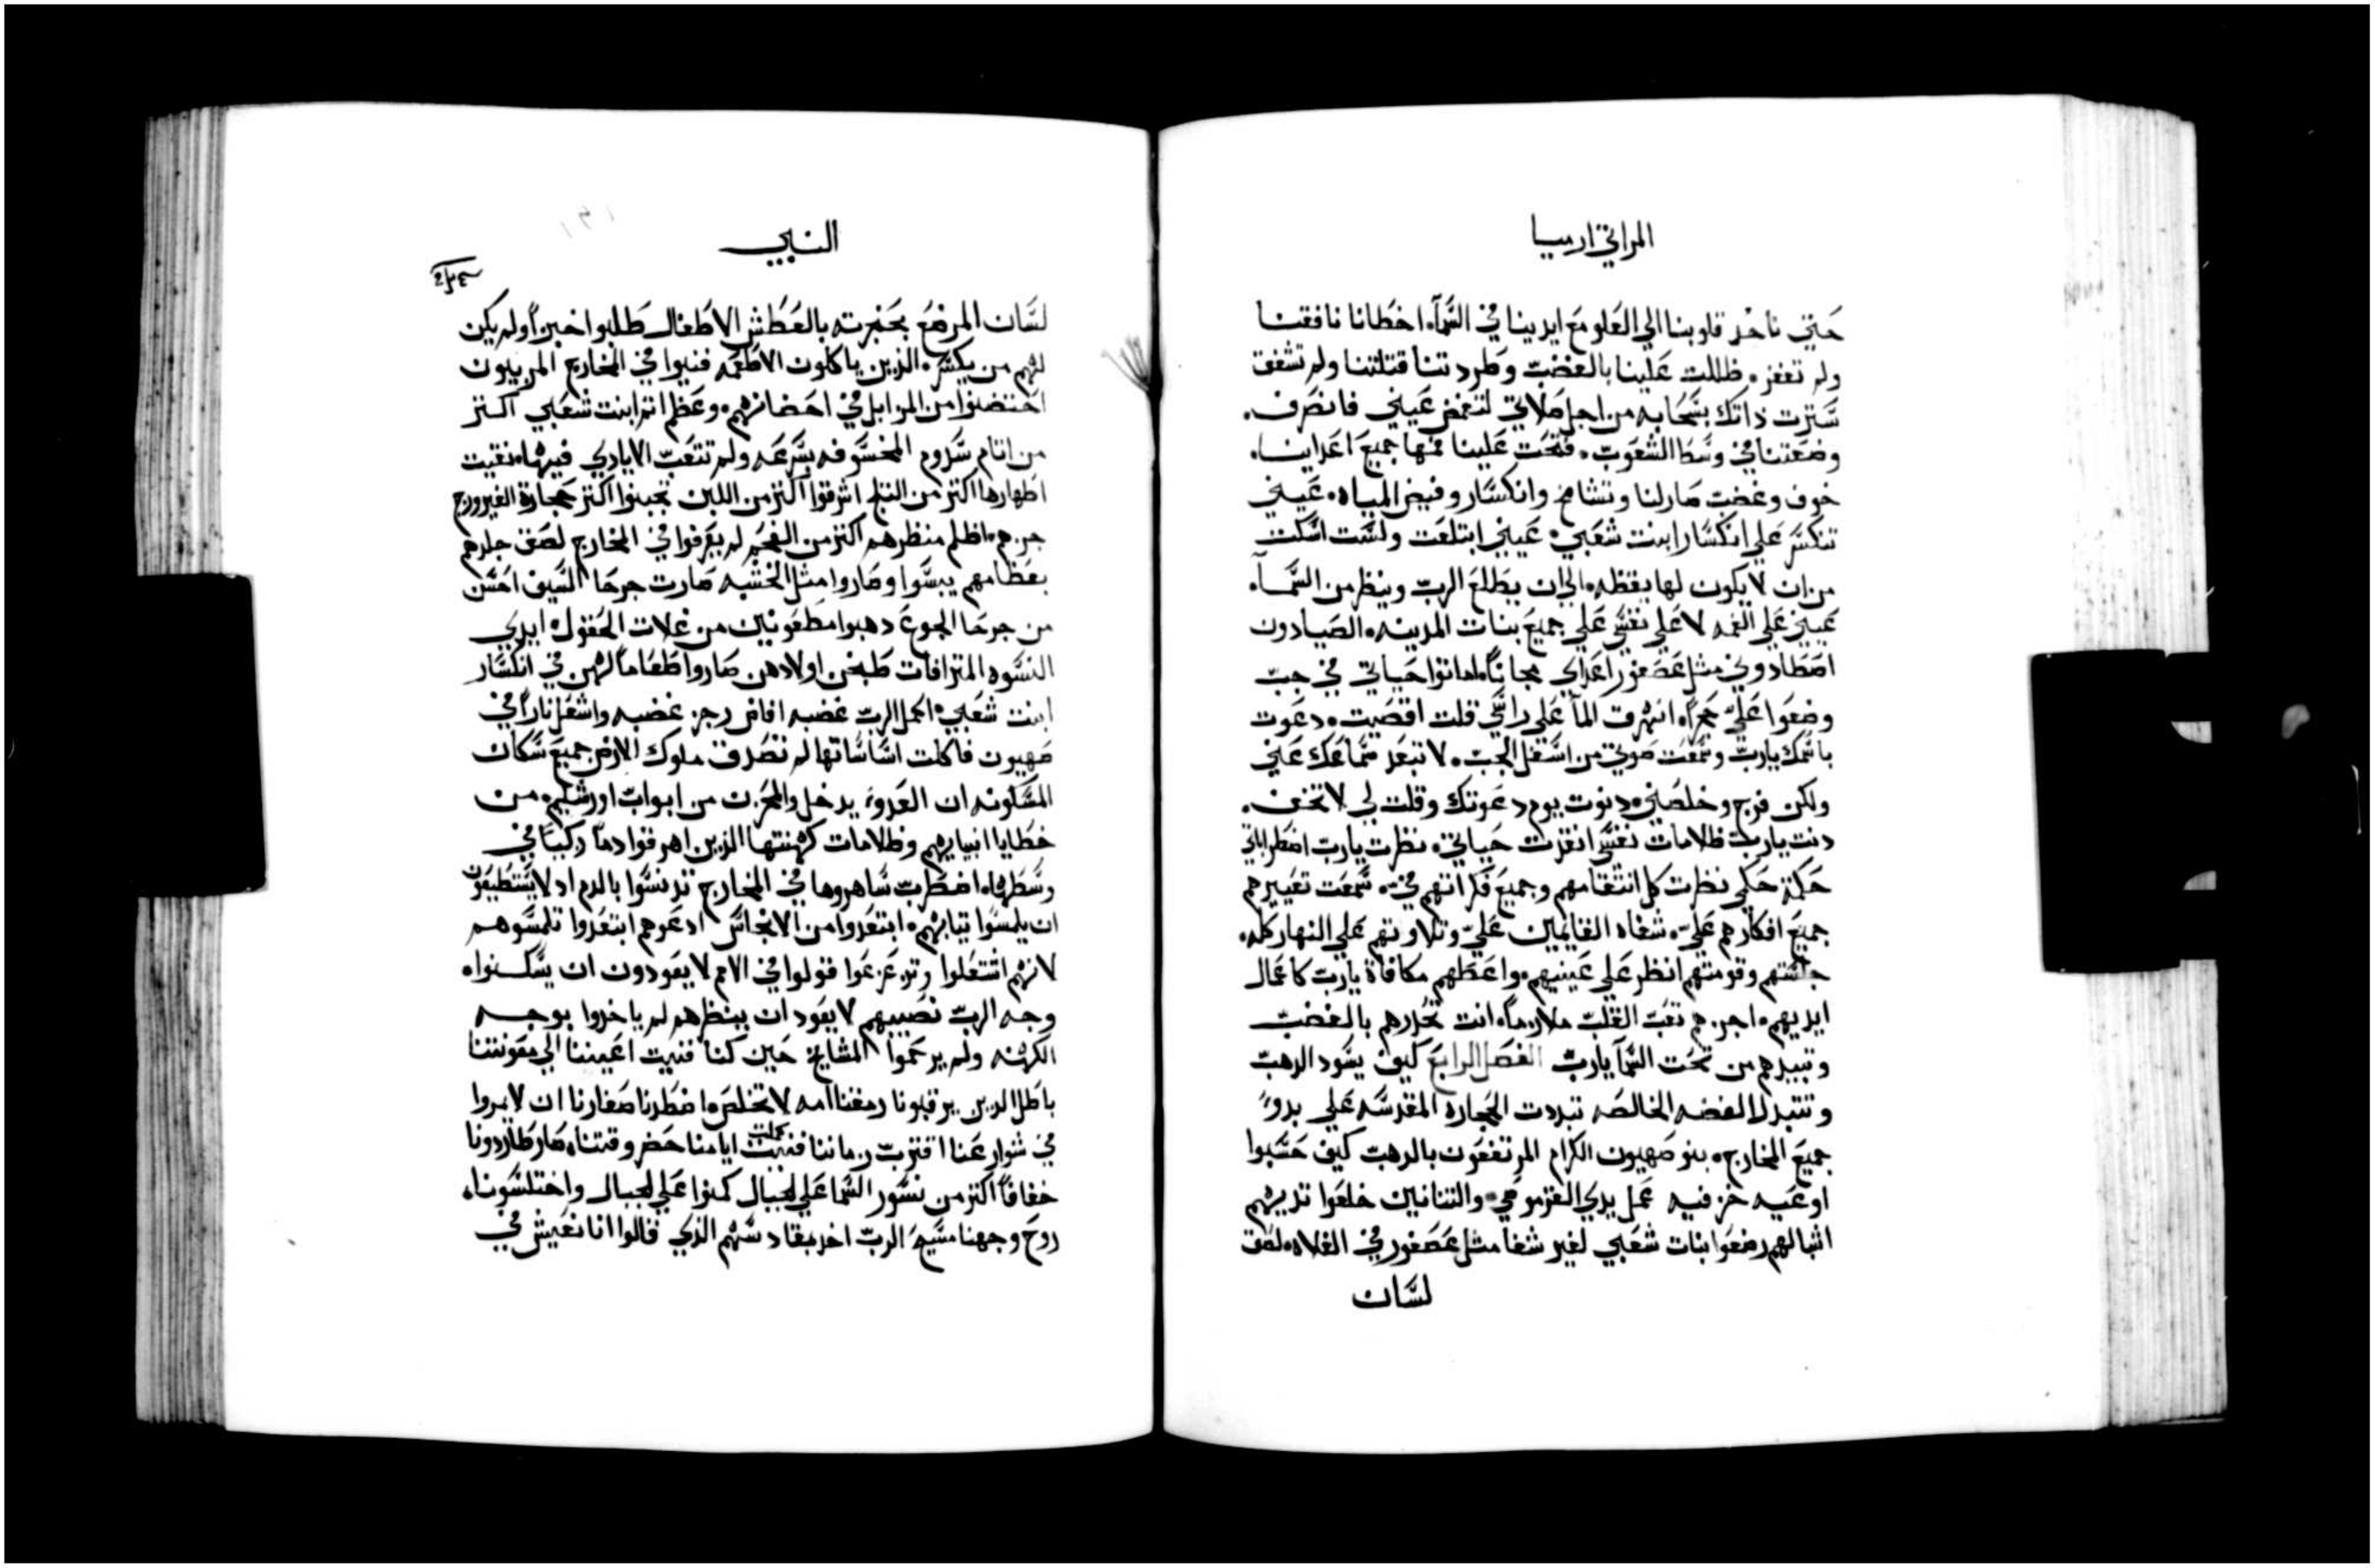 المراثي ارميا
حتي ناخد قلوبنا الي العلو مع ايدينا في السماء اخطانا نافقنا
ولم تغفر. ظللت علينا بالغضب وطردتنا قتلتنا ولم تشفق
سترت ذاتك بسحابه من اجل صلاتي لتغمض عيني فانصرف.
وضعتنا في وسط الشعوب. فتحت علينا فمها جميع اعداينا.
خوف وغضب صار لنا وتشامخ وانكسار وفيض المياه. عيني
تنكسر علي انكسار ابنت شعبي. عيني ابتلعت ولست اسكت
من ان لا يكون لها يقظه. الي ان يطلع الرب وينظر من السماء.
عيني علي الغمه لا علي نفسي علي جميع بنات المدينه. الصيادون
اصطادوني مثل عصفور اعداي مجانا. اماتوا حياتي في جب
وضعوا علي حجرا. انهرق الما علي راسي قلت اقصيت. دعوت
باسمك يارب وسمعت صوتي من اسفل الجب. لا تبعد سماعك عني
ولكن فرج وخلصني. دنوت يوم دعوتك وقلت لي لا تخف.
دنت يارب ظلامات نفسي انقدت حياتي. نظرت يارب اضطرابي
حكمة حكمي نظرت كل انتقامهم وجميع فكراتهم في. سمعت تعييرهم
جميع افكارهم علي. شفاه القايمين علي وتلاوتهم علي النهار كله.
جلستهم وقومتهم انظر علي عينيهم. واعطهم مكافاة يارب كاعمال
ايديهم. اجزهم تعب القلب ملازما. انت تطردهم بالغضب
وتبيدهم من تحت السما يارب الفصل الرابع كيف يسود الدهب
وتتبدل الفضه الخالصه تبددت الحجاره المقدسه علي بدو
جميع المخارج. بنو صهيون الكرام المرتفعون بالدهب كيف حسبوا
اوعيه خزفيه عمل يدي الفرموخي. والتنانين خلعوا تديهم
اشبالهم رضعوا بنات شعبي لغير شفا مثل عصفور في الفلاه. لصق
لسان
النبي
لسان المرضع بحنجرته بالعطش الاطفال طلبوا خبزا ولم يكن
لهم من يكسره. الذين ياكلون الاطعمه فنيوا في المخارج المربيون
احتضنوا من المزابل في احضانهم. وعظم اتم ابنت شعبي اكتر
من اتام سدوم المخسوفه بسرعه ولم تتعب الايادي فيها. نقيت
اطهارها اكتر من التلج اشرقوا اكتر من اللبن تجبنوا اكتر حجارة الفيروزج
جزهم. اظلم منظرهم اكتر من الفحم لم يعرفوا في المخارج لصق جلدهم
بعظامهم يبسوا وصاروا مثل الخشبه صارت جرحا السيف احسن
من جرحا الجوع دهبوا مطعونين من غلات الحقول. ايدي
النسوه المترافات طبخن اولادهن صاروا طعاما لهن في انكسار
ابنت شعبي. اكمل الرب غضبه افاض رجز غضبه واشعل نارا في
صهيون فاكلت اساساتها لم تصدق ملوك الارض جميع سكان
المسكونه ان العدو يدخل والمحزن من ابواب اورشليم. من
خطايا انبيايهم وظلامات كهنتها الذين اهرقوا دما زكيا في
وسطها. اضطرب ساهروها في المخارج تدنسوا بالدم اد لا يستطيعون
ان يلمسوا تيابهم. ابتعدوا من الانجاس ادعوهم ابتعدوا تلمسوهم
لانهم اشتعلوا وتزعزعوا قولوا في الامم لا يعودون ان يسكنوا.
وجه الرب نصيبهم لا يعود ان ينظرهم لم ياخدوا بوجه
الكهنه ولم يرحموا المشايخ حين كنا فنيت اعيننا الي معونتنا
باطل الدين يرقبونا رمقنا امه لا تخلص. اضطرنا صغارنا ان لا يمروا
في شوارعنا اقترب زماننا فنيت كملت ايامنا حضر وقتنا. صار طاردونا
خفافا اكتر من نسور السما علي الجبال كمنوا علي الجبال واختلسونا.
روح وجهنا مسيح الرب اخد بفسادهم الذي قالوا انا نعيش في